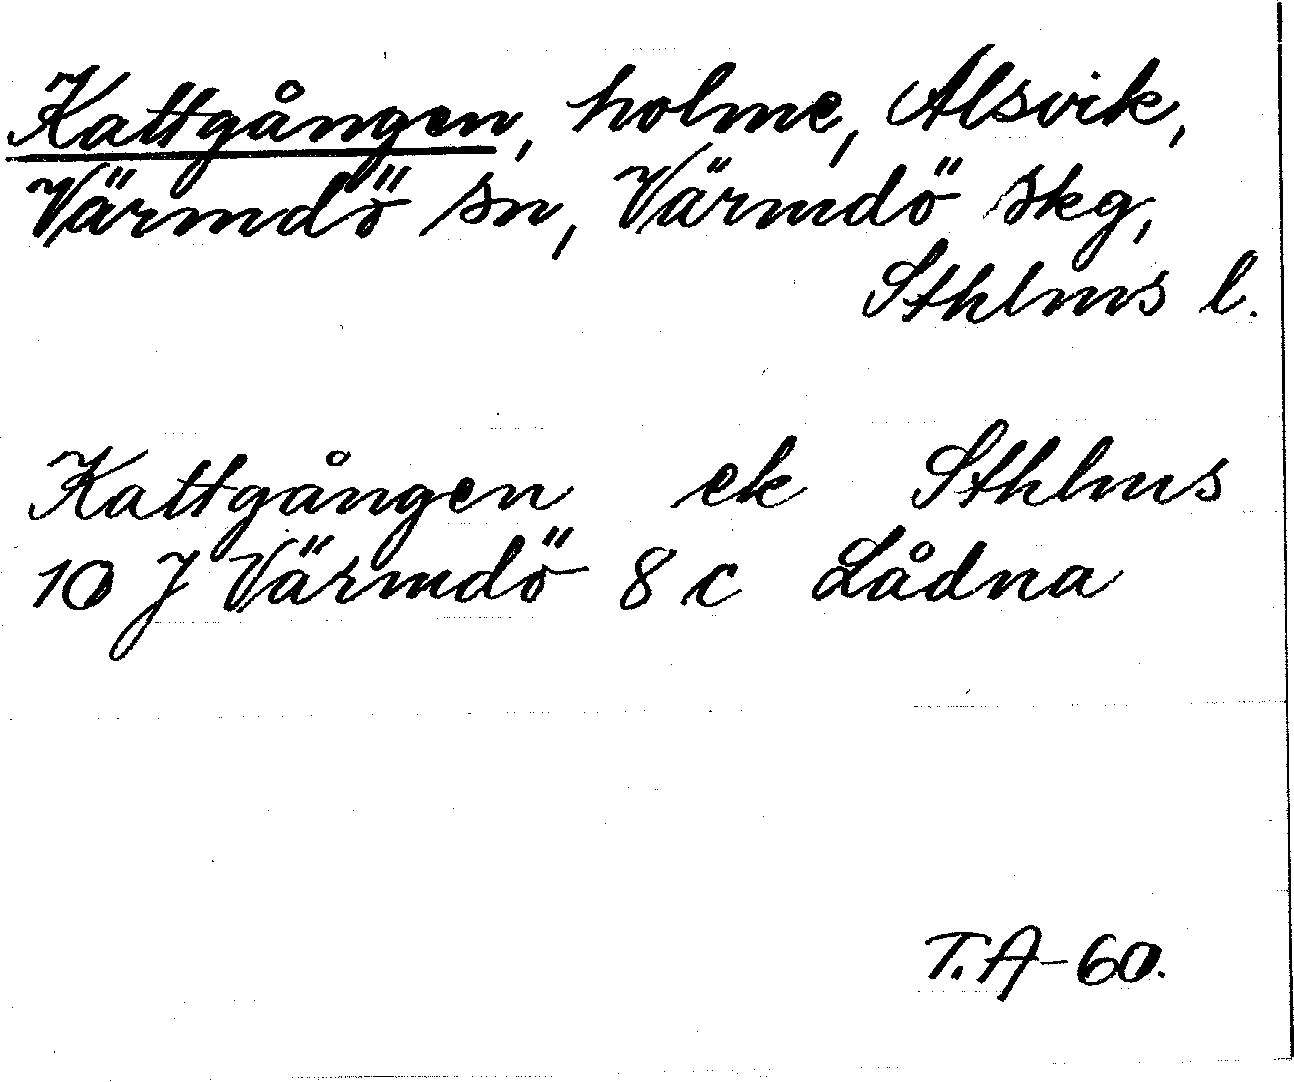 Kattgången, holme, Alsvik,
Värmdö sn, Värmdö skg,
Sthlms l.
Kattgången ek Sthlms
10 J Värmdö 8 c Lådna
T.A-60.